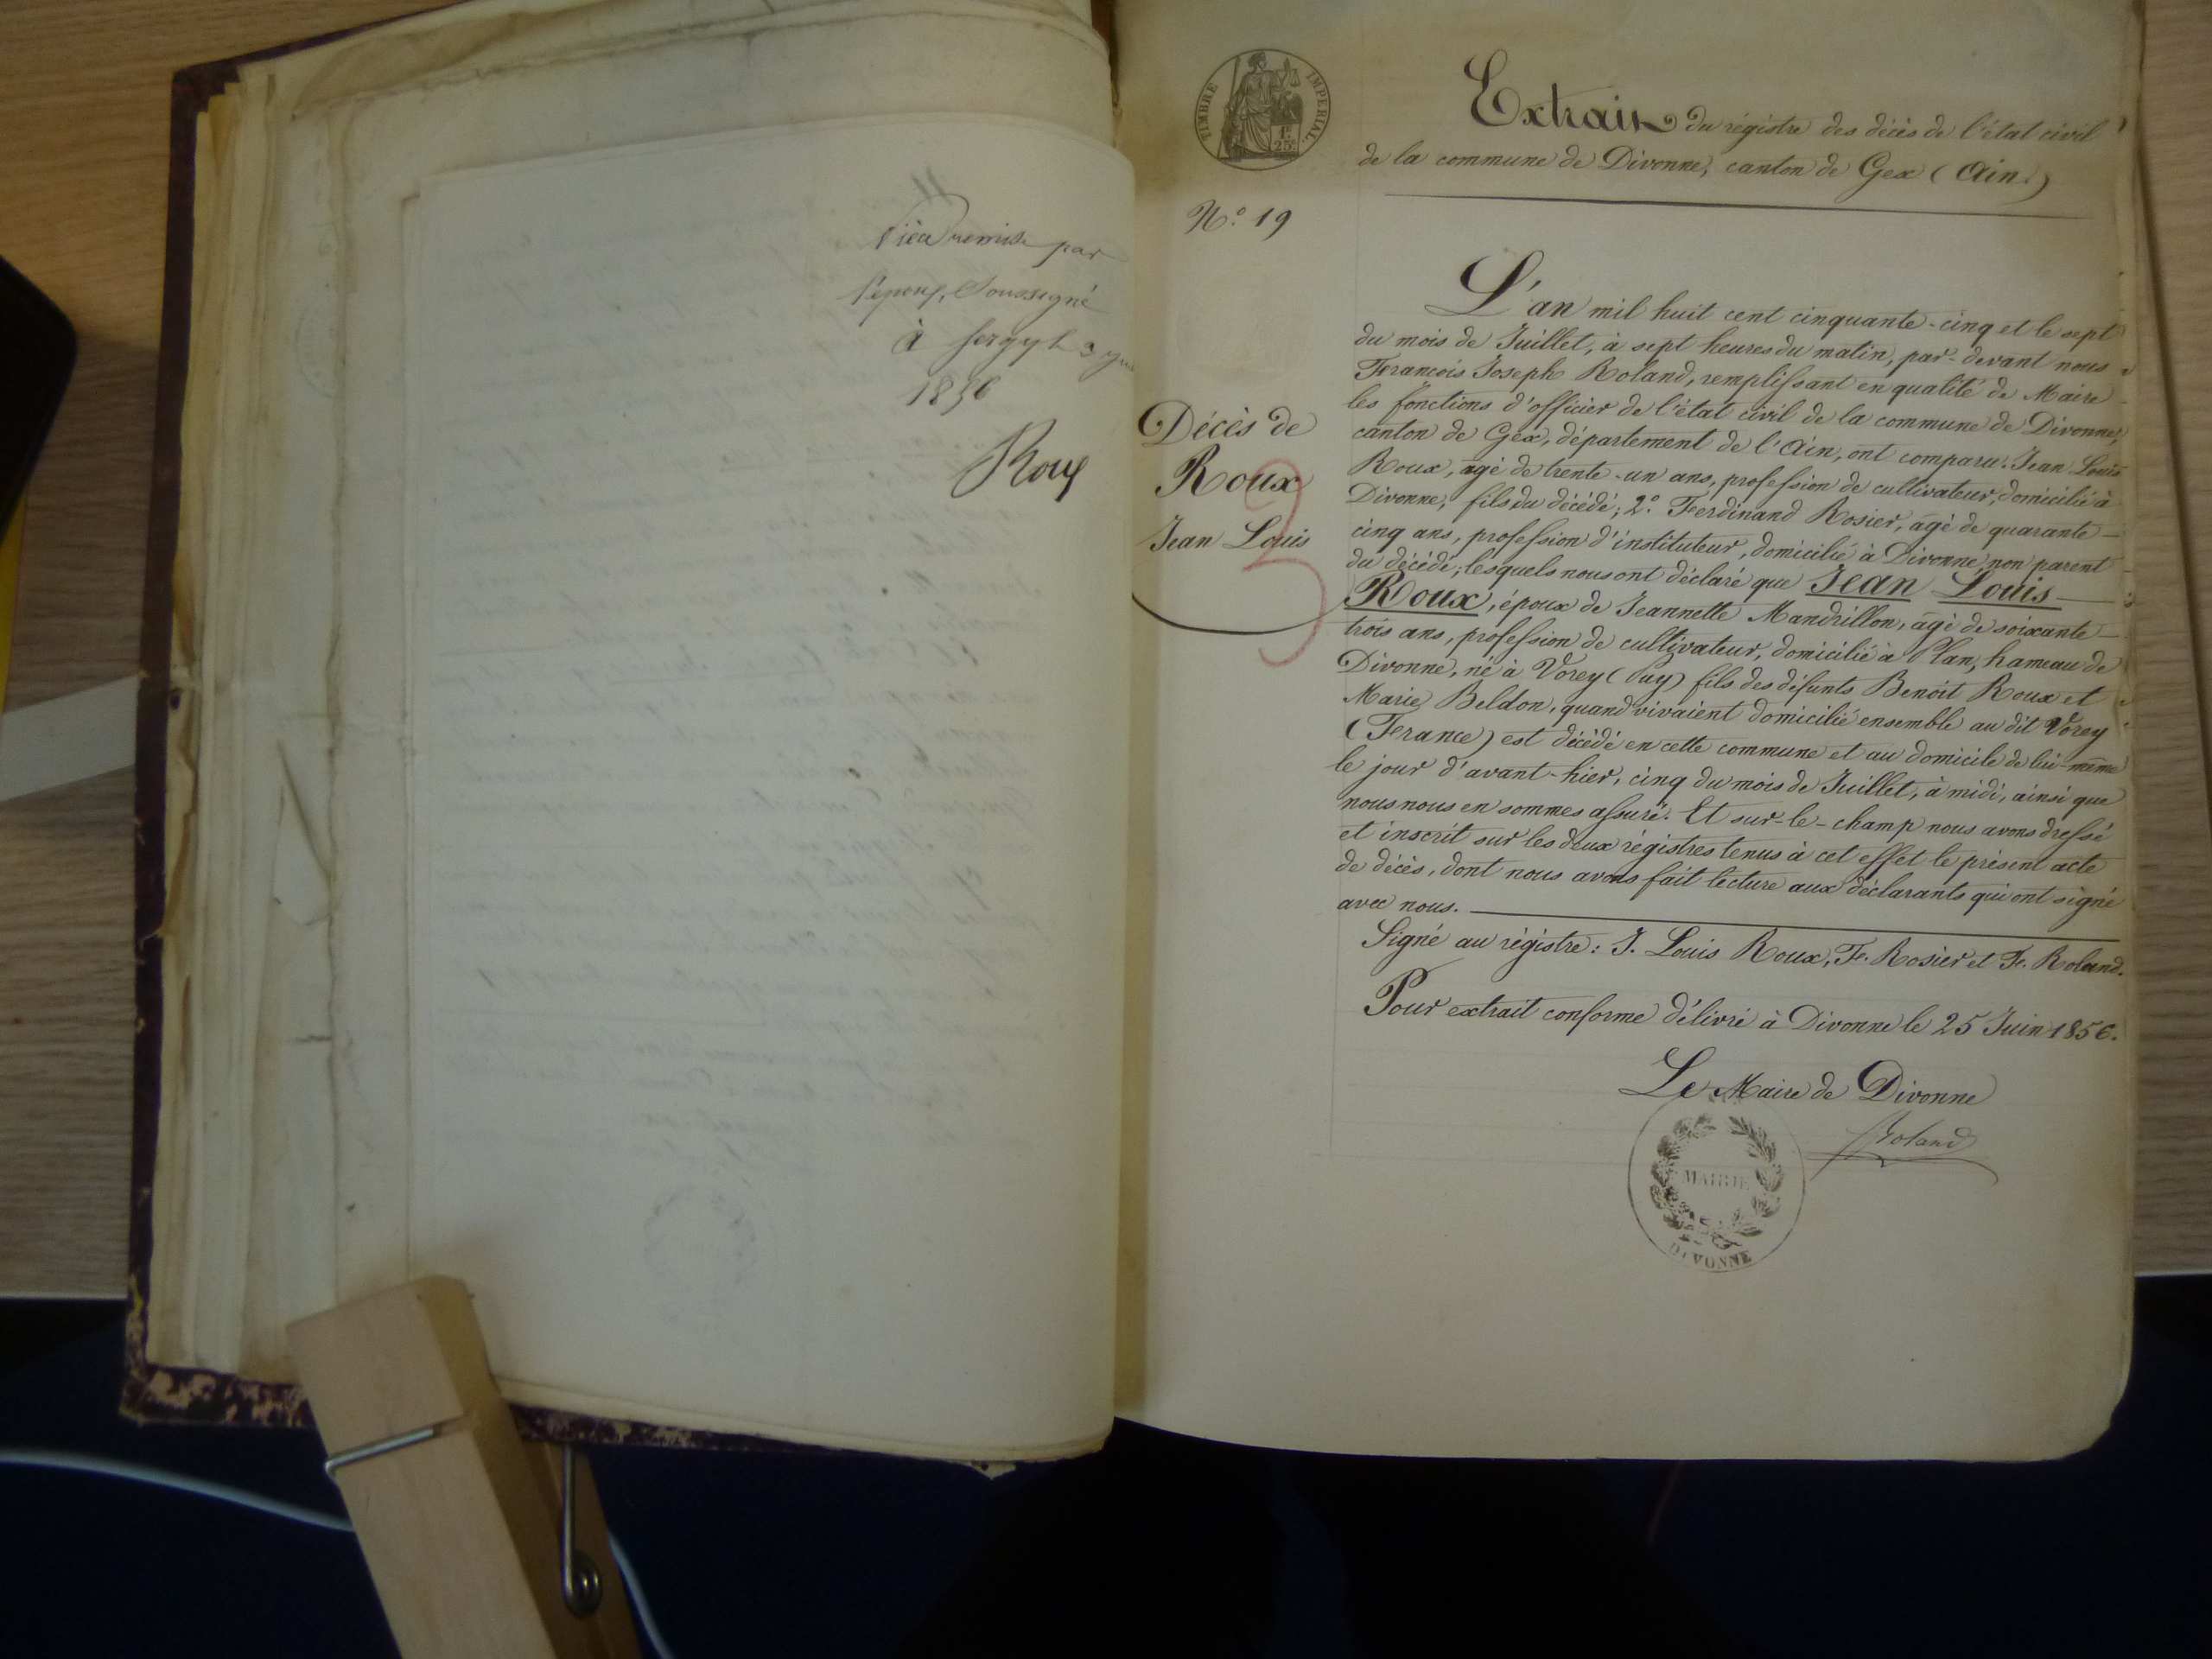 Pièce remise par
l'époux soussigné
à Sergy le 3
1856
Roux
TIMBRE IMPERIAL
1F.
25C.
Extrait du régistre des décès de l'état civil
de la commune de Divonne, canton de Gex (Ain.)
N.º 19
Décès de
Roux
Jean Louis
L'an mil huit cent cinquante-cinq et le sept
du mois de Juillet, à sept heures du matin, par-devant nous
Francois Joseph Roland, remplissant en qualité de Maire
les fonctions d'officier de l'état civil de la commune de Divonne,
canton de Gex, département de l'Ain, ont comparu. Jean Louis
Roux, agé de trente-un ans, profession de cultivateur, domicilié à
Divonne, fils du décédé; 2º. Ferdinand Rosier, agé de quarante-
cinq ans, profession d'instituteur, domicilié à Divonne non parent
du décédé; lesquels nous ont déclaré que Jean Louis
Roux, époux de Jeannette Mandrillon, agé de soixante-
trois ans, profession de cultivateur, domicilié à Plan, hameau de
Divonne, né à Vorey (Puy) fils des défunts Benoit Roux et
Marie Beldon, quand vivaient domicilié ensemble au dit Vorey
(France) est décédé en cette commune et au domicile de lui-même
le jour d'avant-hier, cinq du mois de Juillet, à midi, ainsi que
nous nous en sommes assuré. Et sur-le-champ nous avons dressé
et inscrit sur les deux régistres tenus à cet effet le présent acte
de décès, dont nous avons fait lecture aux déclarants qui ont signé
avec nous.
Signé au régistre: J. Louis Roux, F. Rosier et F. Roland.
Pour extrait conforme délivré à Divonne le 25 Juin 1856.
Le Maire de Divonne
Roland
MAIRIE
DIVONNE